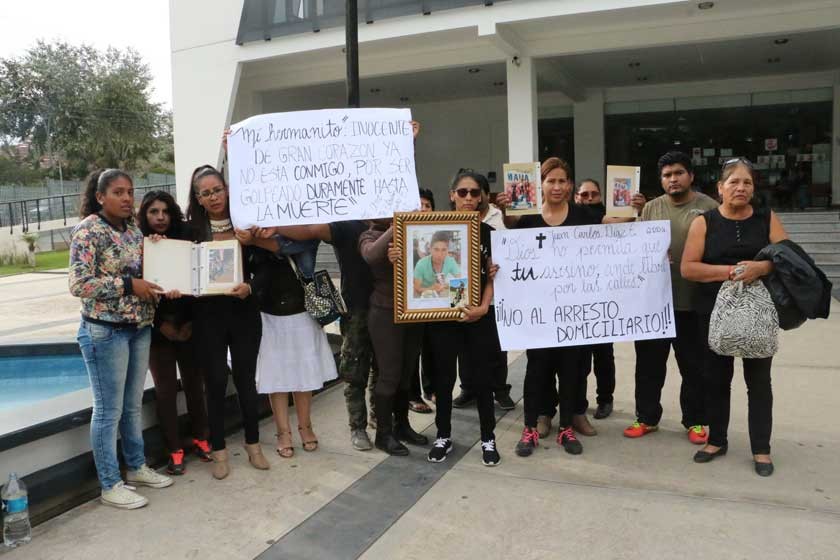 "Mi hermanito": INOCENTE
DE GRAN CORAZON YA
NO ESTA CONMIGO, POR SER
GOLPEADO DURAMENTE HASTA
LA MUERTE"
Juan Carlos
"Dios no permita que
tu asesino, ande libre
por las calles.
¡¡NO AL ARRESTO
DOMICILIARIO!!!